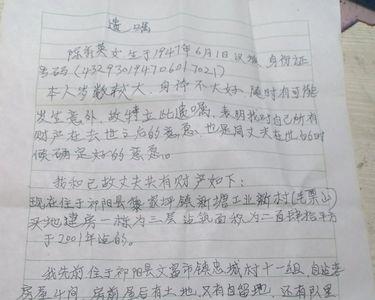 遗嘱
陈有英女生于1947年6月1日汉族,身份证
号码(432930194706017021)
本人岁数较大,身体不大好,随时有可能
发生意外,故特立此遗嘱,表明我对自己所有
财产在去世之后的意愿,也是同丈夫在世的时
候确定好的意愿。
我和已故丈夫共有财产如下:
现在住于祁阳县黎家坪镇新塘工业新村(毛栗山)
买地建房一栋为三层 建筑面积为二百肆拾平方
于2001年造的。
我先前住于祁阳县文富市镇忠城村十一组,自造
房屋 间,房前屋后有土地,又有自留地,还有队里